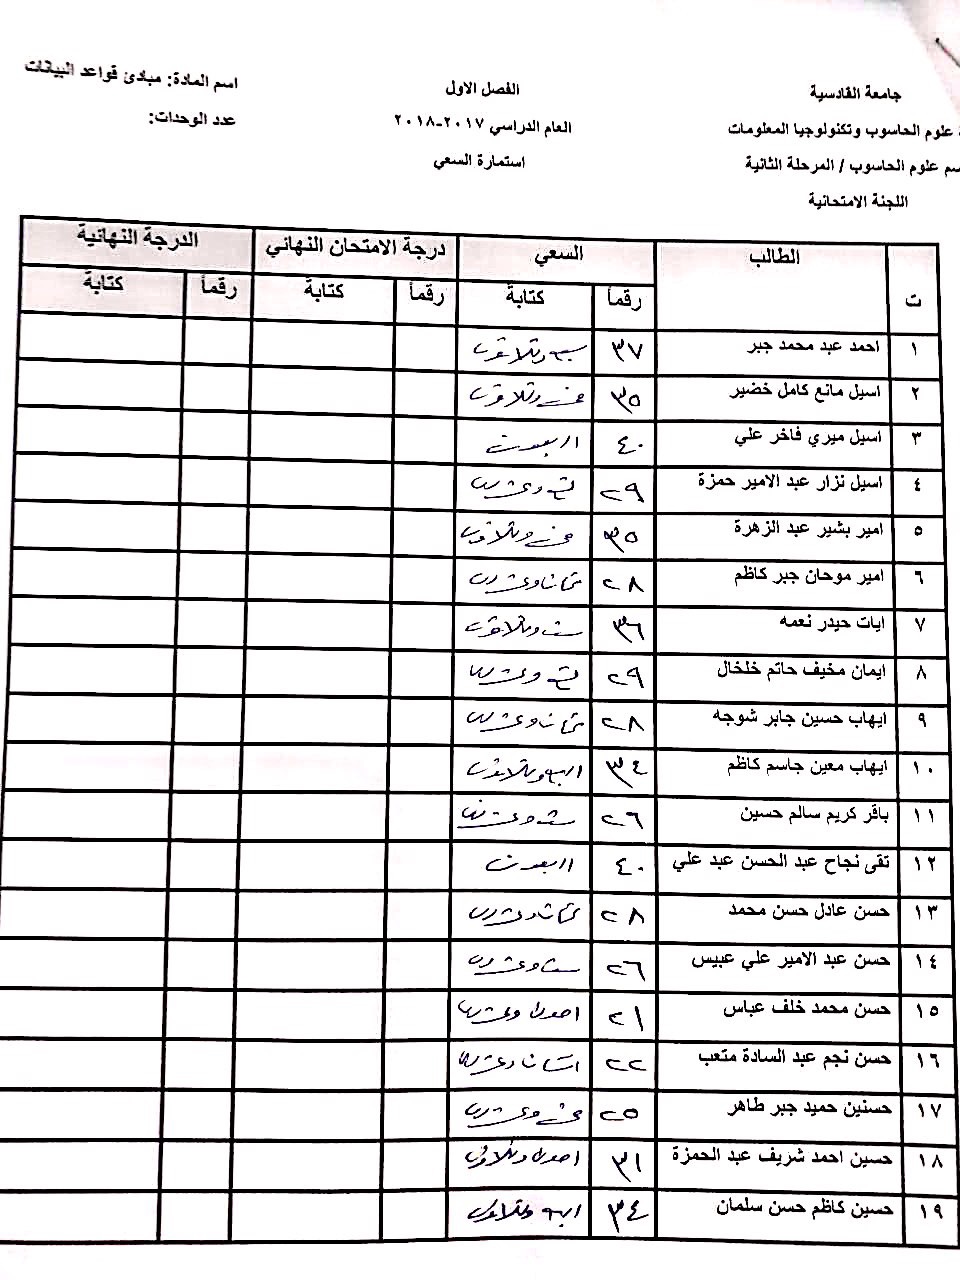 جامعة القادسية
علوم الحاسوب وتكنولوجيا المعلومات
سم علوم الحاسوب / المرحلة الثانية
اللجنة الامتحانية
الفصل الاول
العام الدراسي ٢٠١٧-٢٠١٨
استمارة السعي
اسم المادة: مبادئ قواعد البيانات
عدد الوحدات:
ت الطالب السعي درجة الامتحان النهائي الدرجة النهائية
رقماً كتابة رقماً كتابة رقماً كتابة
١ احمد عبد محمد جبر ٣٧ سبعة وثلاثون
٢ اسيل مانع كامل خضير ٣٥ خمسة وثلاثون
٣ اسيل ميري فاخر علي ٤٠ اربعون
٤ اسيل نزار عبد الامير حمزة ٢٩ تسعة وعشرون
٥ امير بشير عبد الزهرة ٣٥ خمسة وثلاثون
٦ امير موحان جبر كاظم ٢٨ ثمانية وعشرون
٧ ايات حيدر نعمه ٣٦ ستة وثلاثون
٨ ايمان مخيف حاتم خلخال ٢٩ تسعة وعشرون
٩ ايهاب حسين جابر شوجه ٢٨ ثمانية وعشرون
١٠ ايهاب معين جاسم كاظم ٣٤ اربعة وثلاثون
١١ باقر كريم سالم حسين ٢٦ ستة وعشرون
١٢ تقى نجاح عبد الحسن عبد علي ٤٠ اربعون
١٣ حسن عادل حسن محمد ٢٨ ثمانية وعشرون
١٤ حسن عبد الامير علي عبيس ٢٦ ستة وعشرون
١٥ حسن محمد خلف عباس ٢١ احدى وعشرون
١٦ حسن نجم عبد السادة متعب ٢٢ اثنان وعشرون
١٧ حسنين حميد جبر طاهر ٢٥ خمسة وعشرون
١٨ حسين احمد شريف عبد الحمزة ٣١ احدى وثلاثون
١٩ حسين كاظم حسن سلمان ٣٤ اربعة وثلاثون